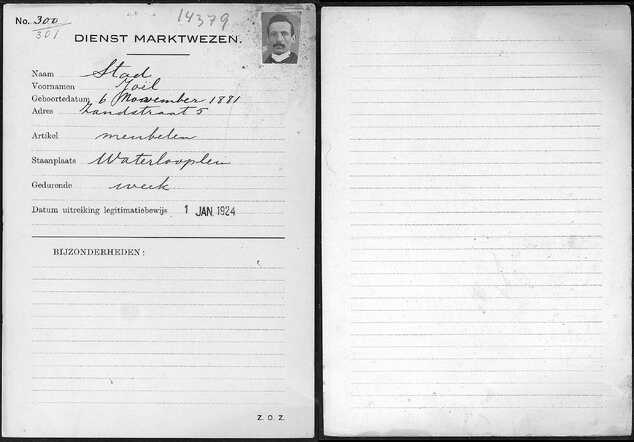 No. 300
301
14379
DIENST MARKTWEZEN.
Naam Stad
Voornamen Joël
Geboortedatum 6 November 1881
Adres Zandstraat 5
Artikel meubelen
Staanplaats Waterlooplein
Gedurende week
Datum uitreiking legitimatiebewijs 1 JAN. 1924
BIJZONDERHEDEN:
Z. O. Z.